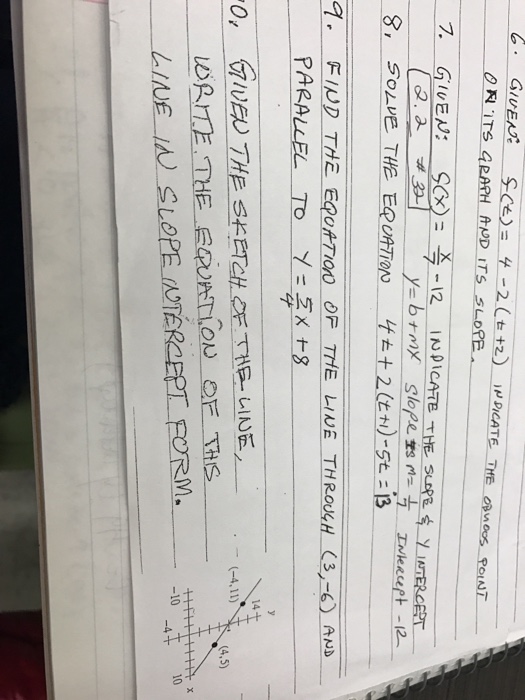 6. GIVEN: f(t) = 4 - 2(t+2) INDICATE THE OBVIOUS POINT
ON ITS GRAPH AND ITS SLOPE.
7. GIVEN: g(x) = x/7 - 12 INDICATE THE SLOPE & Y INTERCEPT
2.2 #32 y=b+mx Slope is m=1/7 Intercept -12
8. SOLVE THE EQUATION 4t+2(t+1)-5t=13
9. FIND THE EQUATION OF THE LINE THROUGH (3,-6) AND
PARALLEL TO Y = 5/4 X + 8
10. GIVEN THE SKETCH OF THE LINE,
WRITE THE EQUATION OF THIS
LINE IN SLOPE INTERCEPT FORM.
y
14
(-4, 11)
(4, 5)
x
-10
-4
10